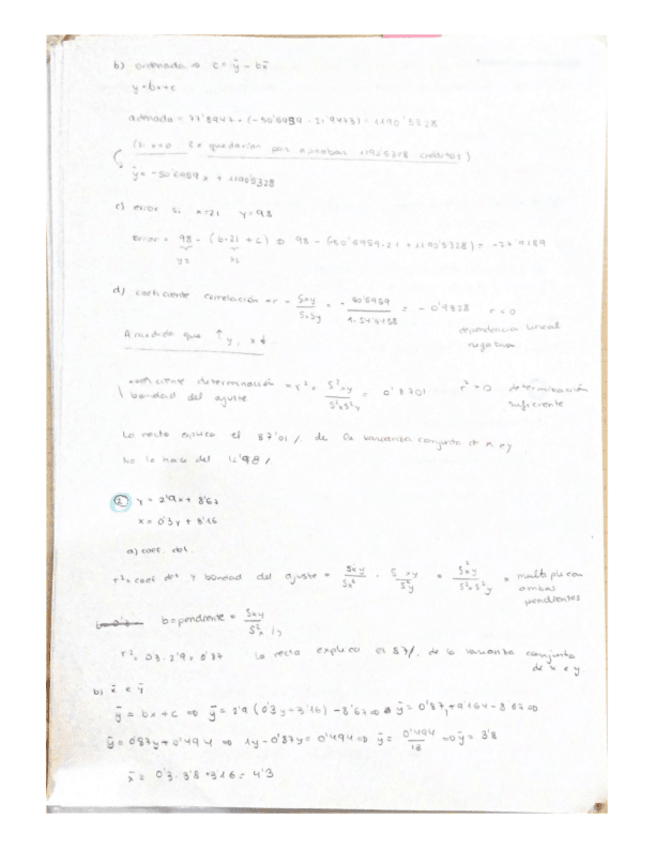 b) ordenada ⇒ c = ȳ - bx̄
y = bx + c
ordenada = 77'8947 - (-50'6959 · 21'9473) = 1190'5328
(Si x=0 quedarían por aprobar 1190'5328 créditos)
ŷ = -50'6959 x + 1190'5328
c) error si x=21 y=98
error = 98 - (b·21 + c) ⇒ 98 - (-50'6959·21 + 1190'5328) = -27'9189
d) coeficiente correlación = r = Sxy / SxSy = - 50'6959 = - 0'9328 r < 0
dependencia lineal negativa
A medida que ↑ y, x ↓
coeficiente determinación = r² = S²xy / S²xS²y = 0'8701 determinación suficiente
bondad del ajuste
La recta explica el 87'01 % de la varianza conjunta de x e y
No lo hace del
2. y = 2'9x + 8'67
x = 0'3y + 3'16
a) coef. det.
r² = coef det y bondad del ajuste = Sxy / S²x · Sxy / S²y = S²xy / S²x S²y = multiplican ambas pendientes
b = pendiente = Sxy / S²x
r² = 0'3 · 2'9 = 0'87 la recta explica el 87% de la varianza conjunta de x e y
b) x̄ e ȳ
ȳ = bx + c ⇒ ȳ = 2'9 (0'3y + 3'16) - 8'67 ⇒ ȳ = 0'87y + 9'164 - 8'67 ⇒
ȳ = 0'87y + 0'494 ⇒ 1y - 0'87y = 0'494 ⇒ ȳ = 0'494 / ⇒ ȳ = 3'8
x̄ = 0'3 · 3'8 + 3'16 = 4'3